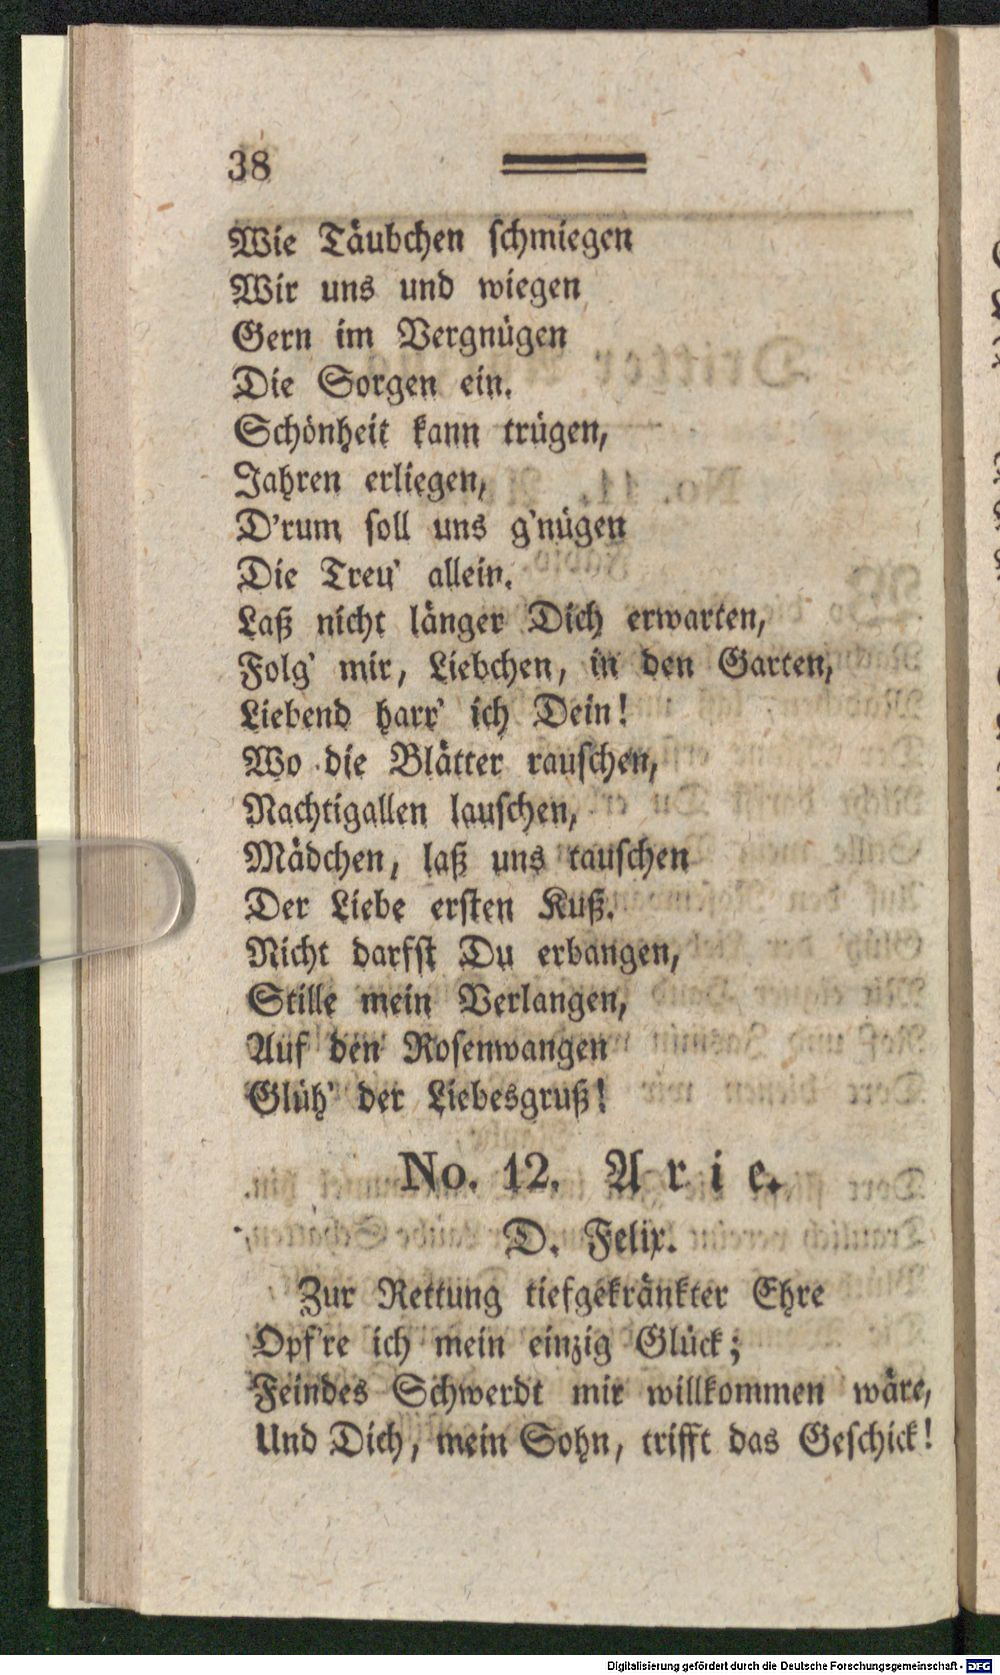 38
Wie Täubchen schmiegen
Wir uns und wiegen
Gern im Vergnügen
Die Sorgen ein.
Schönheit kann trügen,
Jahren erliegen,
D'rum soll uns g'nügen
Die Treu' allein.
Laß nicht länger Dich erwarten,
Folg' mir, Liebchen, in den Garten,
Liebend harr' ich Dein!
Wo die Blätter rauschen,
Nachtigallen lauschen,
Mädchen, laß uns tauschen
Der Liebe ersten Kuß.
Nicht darfst Du erbangen,
Stille mein Verlangen,
Auf den Rosenwangen
Glüh' der Liebesgruß!
No. 12. Arie.
D. Felix.
Zur Rettung tiefgekränkter Ehre
Opf're ich mein einzig Glück;
Feindes Schwerdt mir willkommen wäre,
Und Dich, mein Sohn, trifft das Geschick!
Digitalisierung gefördert durch die Deutsche Forschungsgemeinschaft - DFG